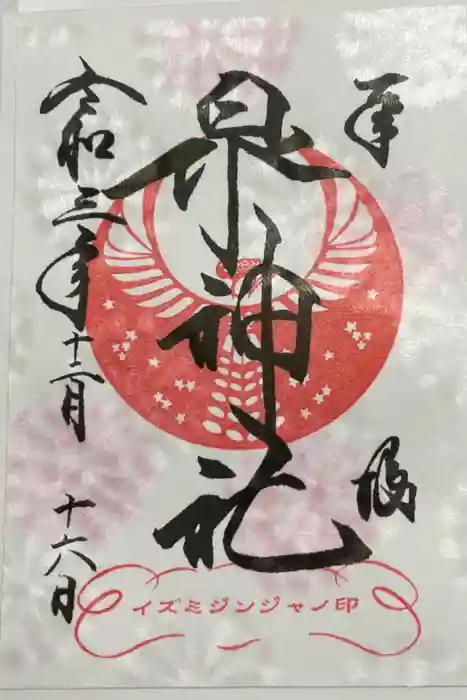 拝謁
泉神社
令和三年十二月十六日
イズミジンジャノ印